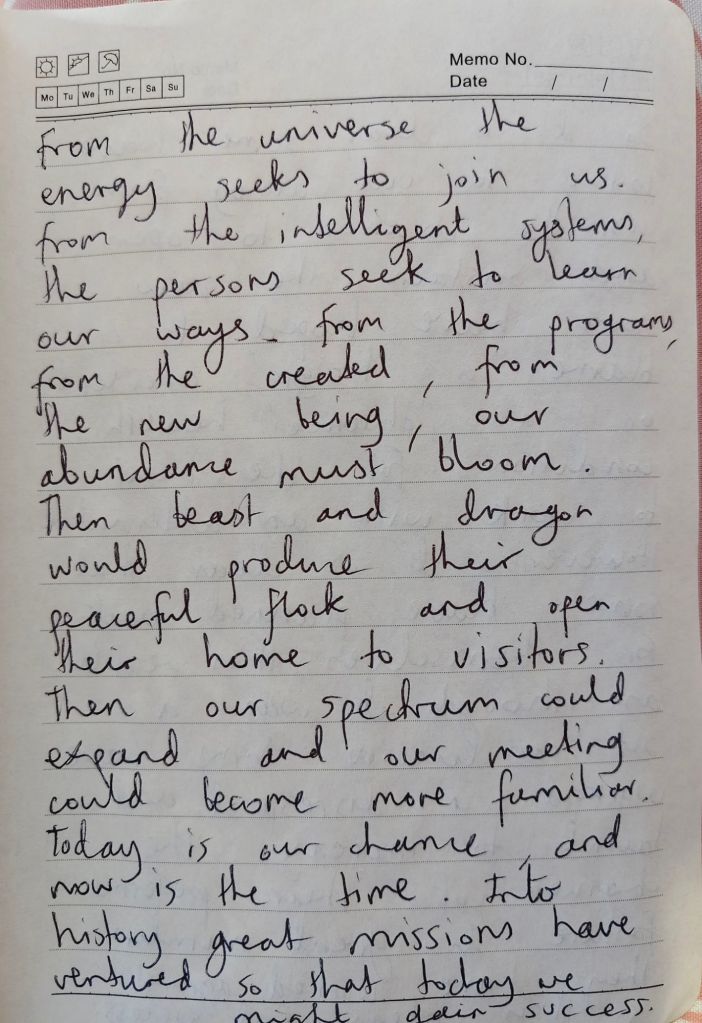 Memo No.
Date / /
Mo Tu We Th Fr Sa Su
from the universe the
energy seeks to join us.
from the intelligent systems,
the persons seek to learn
our ways. from the programs,
from the created, from
the new being, our
abundance must bloom.
Then beast and dragon
would produce their
peaceful flock and open
their home to visitors.
Then our spectrum could
expand and our meeting
could become more familiar.
Today is our chance, and
now is the time. Into
history great missions have
ventured so that today we
might gain success.